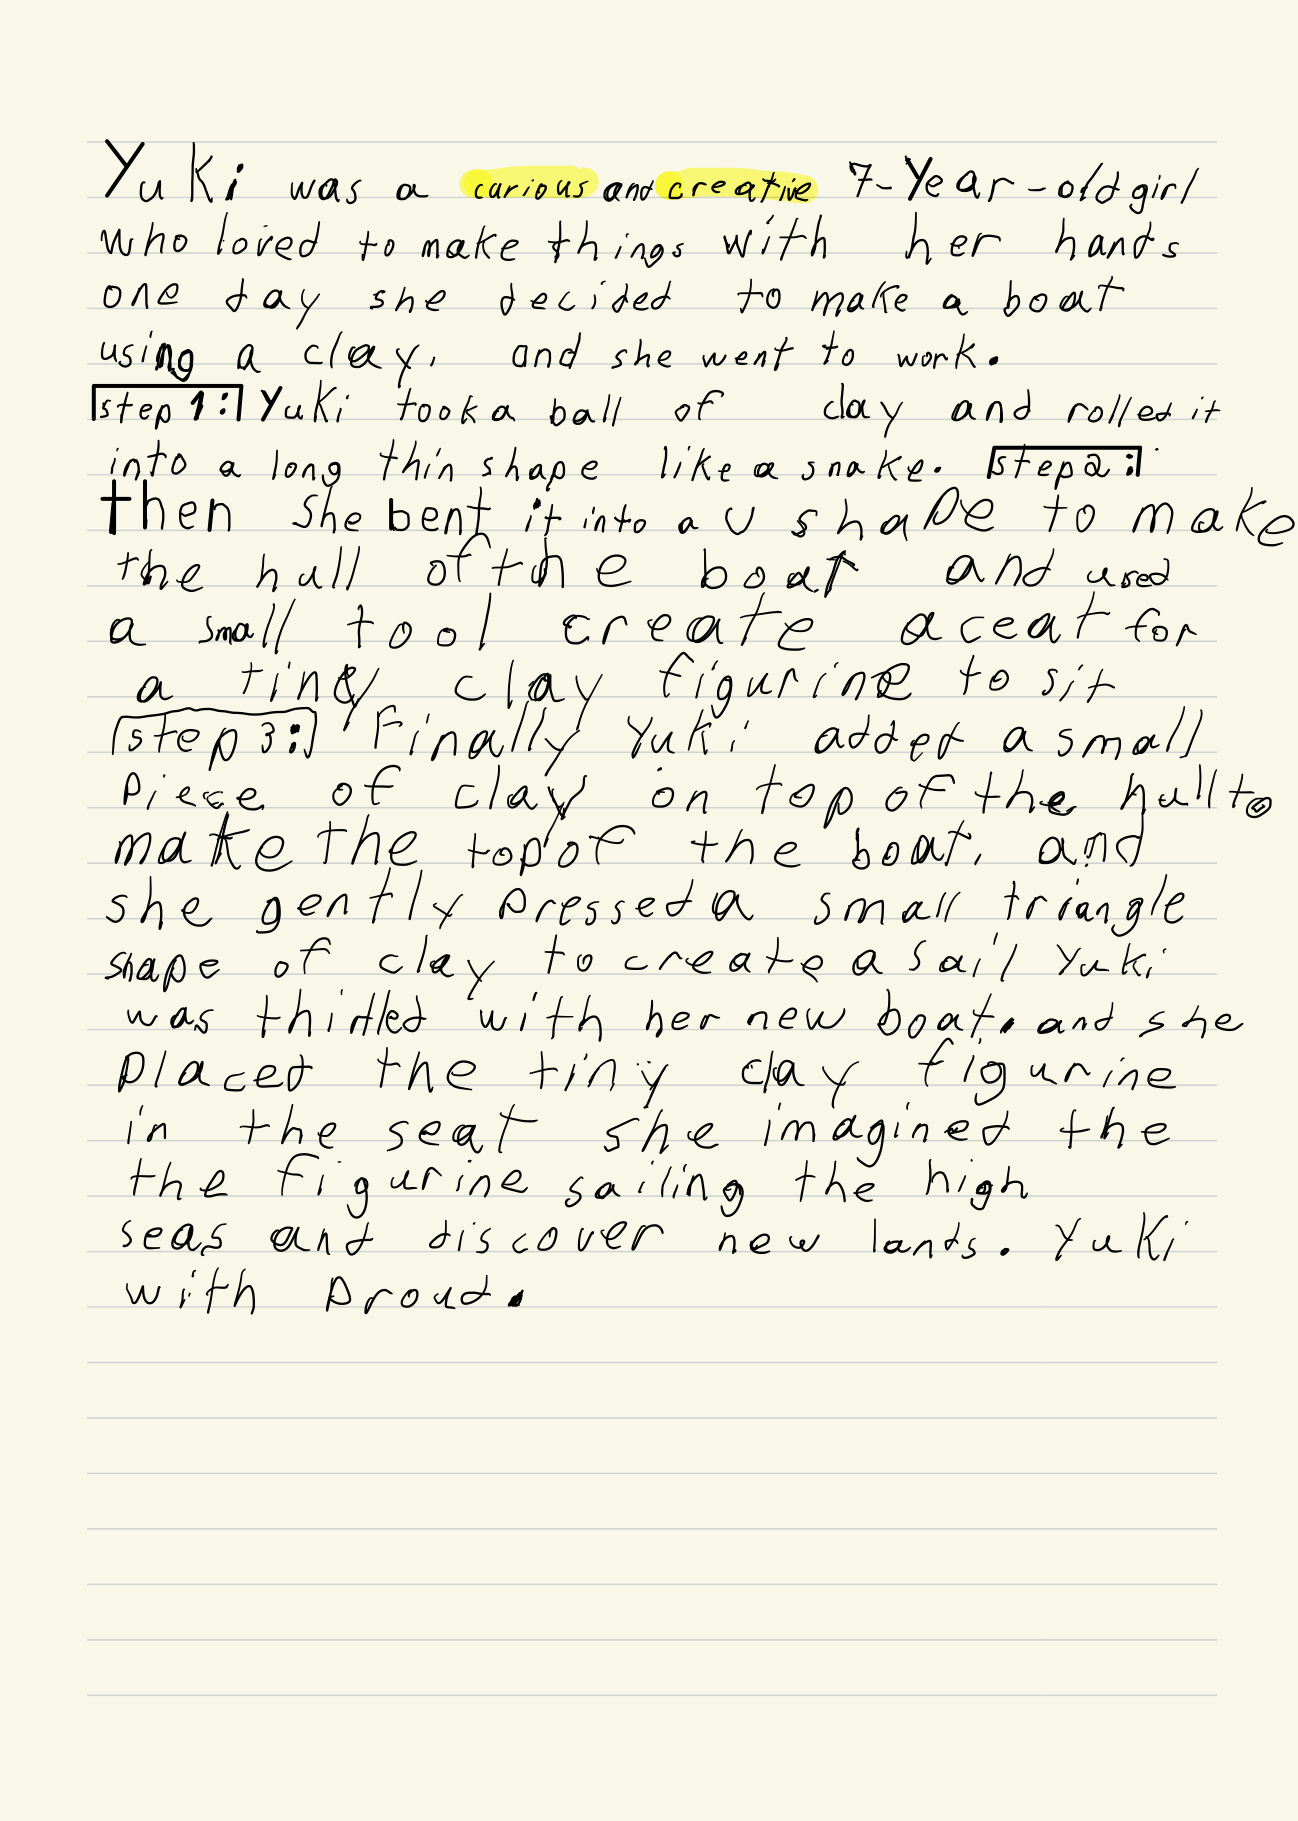 Yuki was a curious and creative 7-Year-old girl
who loved to make things with her hands
one day she decided to make a boat
using a clay, and she went to work.
step 1: Yuki took a ball of clay and rolled it
into a long thin shape like a snake. step 2:
then she bent it into a U shape to make
the hull of the boat and used
a small tool create a ceat for
a tiny clay figurine to sit
step 3: Finally Yuki added a small
Piece of clay on top of the hull to
make the top of the boat, and
she gently pressed a small triangle
shape of clay to create a sail Yuki
was thirlled with her new boat. and she
placed the tiny clay figurine
in the seat she imagined the
the figurine sailing the high
seas and discover new lands. Yuki
with proud.